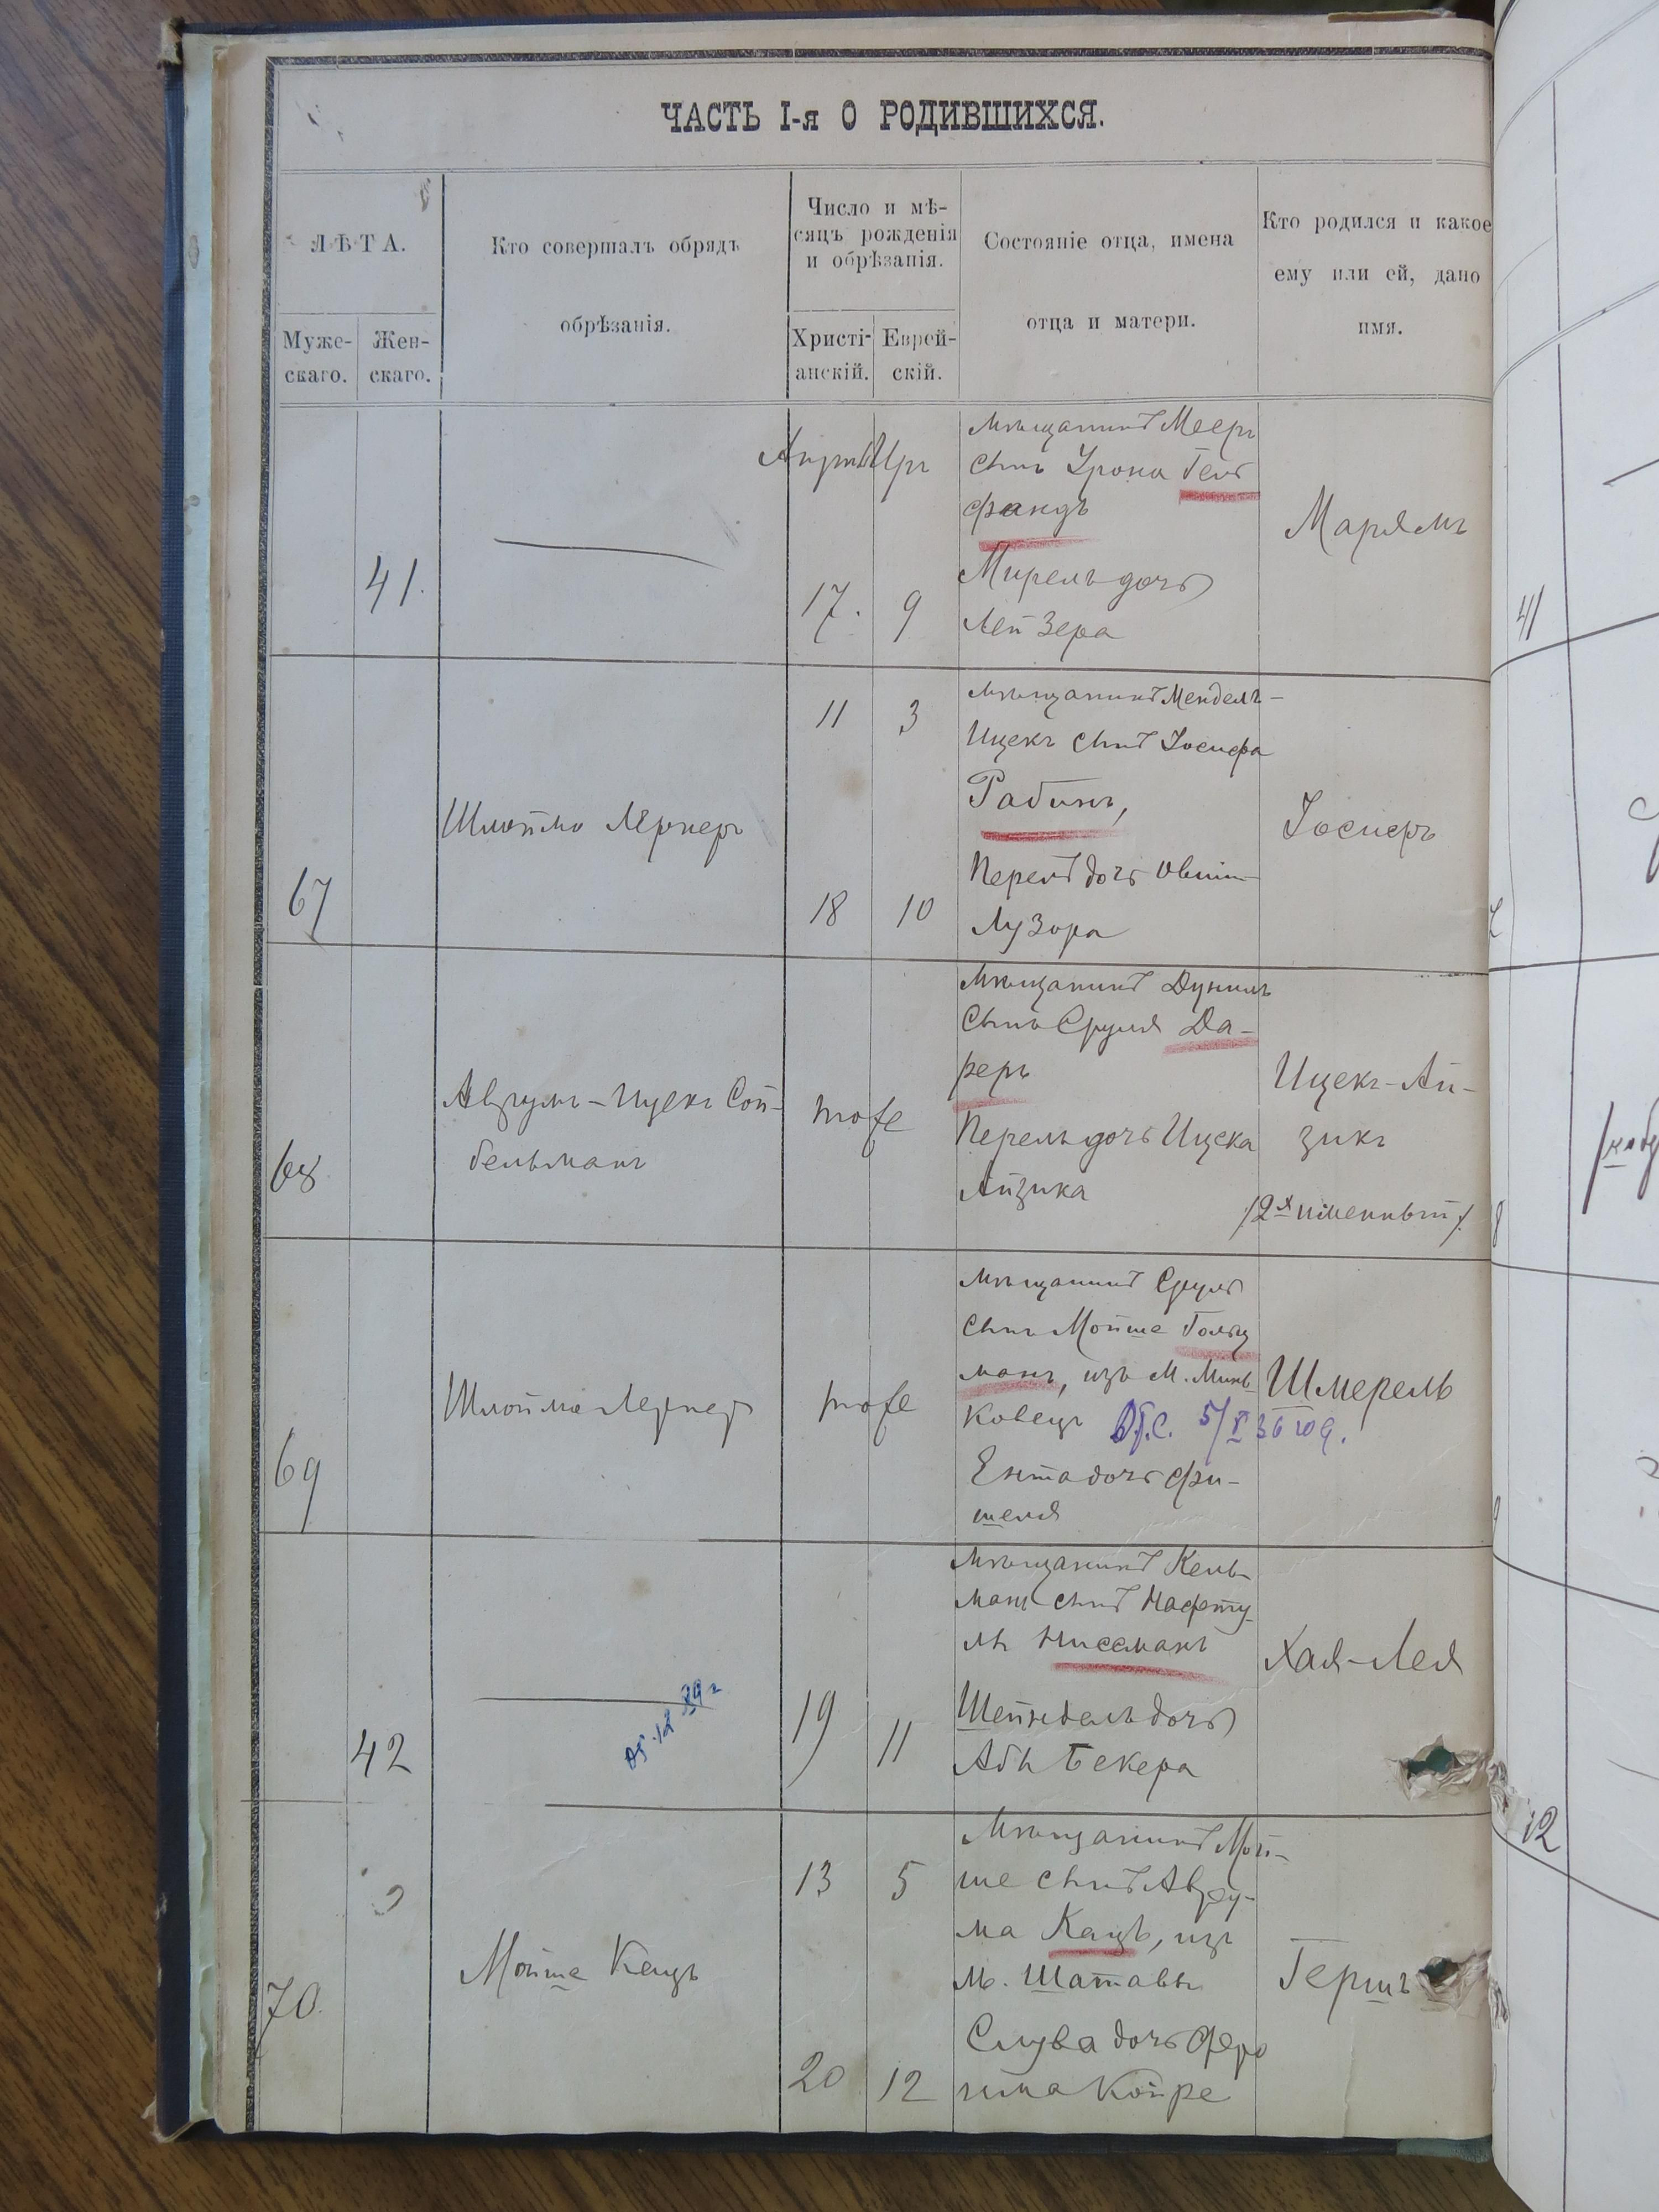 ЧАСТЬ I-я О РОДИВШИХСЯ.
ЛѢТА.
Муже-
скаго.
Жен-
скаго.
Кто совершалъ обрядъ
обрѣзанія.
Число и мѣ-
сяцъ рожденія
и обрѣзанія.
Христі-
анскій.
Еврей-
скій.
Состояніе отца, имена
отца и матери.
Кто родился и какое
ему или ей, дано
имя.
41.
17.
9
мѣщанинъ Мееръ
сынъ Урона Гель
фандъ
Мирель дочь
Лейзера
Марямъ
67
Шлойма Лернеръ
11
3
18
10
мѣщанинъ Мендель-
Ицекъ сынъ Іосифа
Рабинъ,
Перель дочь
Лузора
Іосифъ
68
Аврумъ-Ицекъ Сой-
бельманъ
тоже
мѣщанинъ
сынъ Сруля Да-
реръ
Перель дочь Ицека
Айзика
Ицекъ-Ай-
зикъ
/2х именный/
69
Шлойма Лернеръ
тоже
мѣщанинъ Сруль
сынъ Мойше Гольц
манъ, изъ м. Минь-
ковецъ
5/X 36 год.
Ента дочь Фи-
шеля
Шмерель
42
19
11
мѣщанинъ Кель-
манъ сынъ Нафту-
лы Ниссманъ
Шейндель дочь
Абы Бекера
Хая-Лея
70.
Мойше Кацъ
13
5
20
12
мѣщанинъ Мой-
ше сынъ Авру-
ма Кацъ, изъ
м. Шатавы
Слува дочь Фро
има Койре
Гершъ
41
12